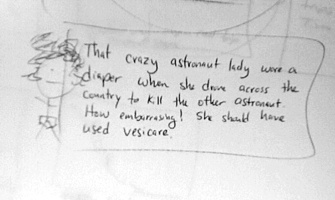 That crazy astronaut lady wore a
diaper when she drove across the
country to kill the other astronaut.
How embarrasing! She should have
used vesicare.